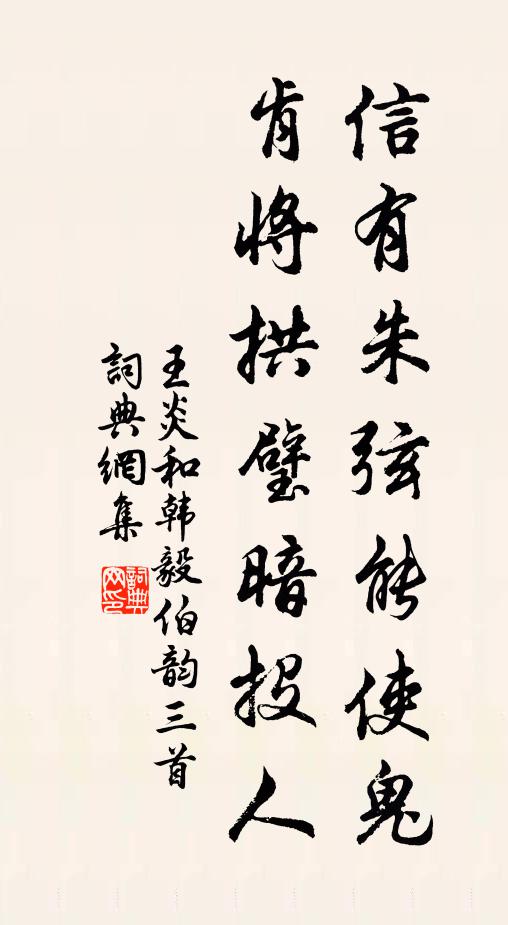 信有朱弦能使鬼
肯將拱璧暗投人
王炎和韩毅伯韵三首
詞典網集
詞典網印